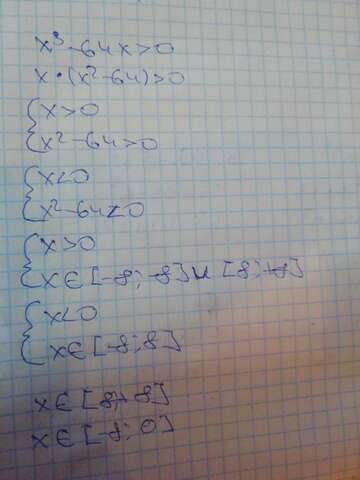 x³-64x>0
x·(x²-64)>0
{x>0
{x²-64>0
{x<0
{x²-64<0
{x>0
{x∈[-8;-8]∪[8;+8]
{x<0
{x∈[-8;8]
x∈[8+8]
x∈[-8;0]